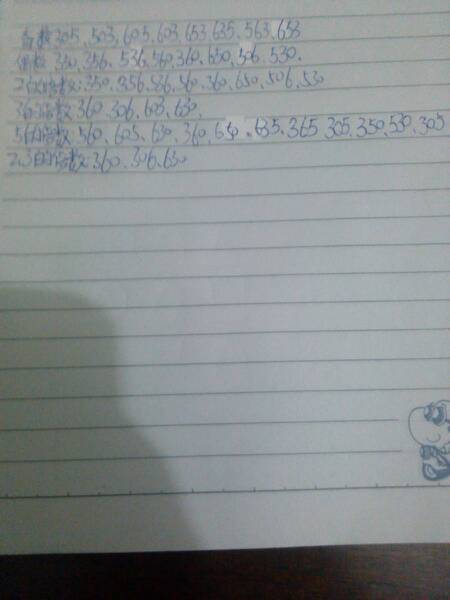 奇数305、503、605、603、653、635、563、653
偶数 350、356、536、560、360、650、506、530.
2的倍数:350、356、536、560、360、650、506、530
3的倍数 360、306、603、630、
5的倍数 560、605、630、360、650、635、365 305、350、530、305
2、3的倍数:360、306、630